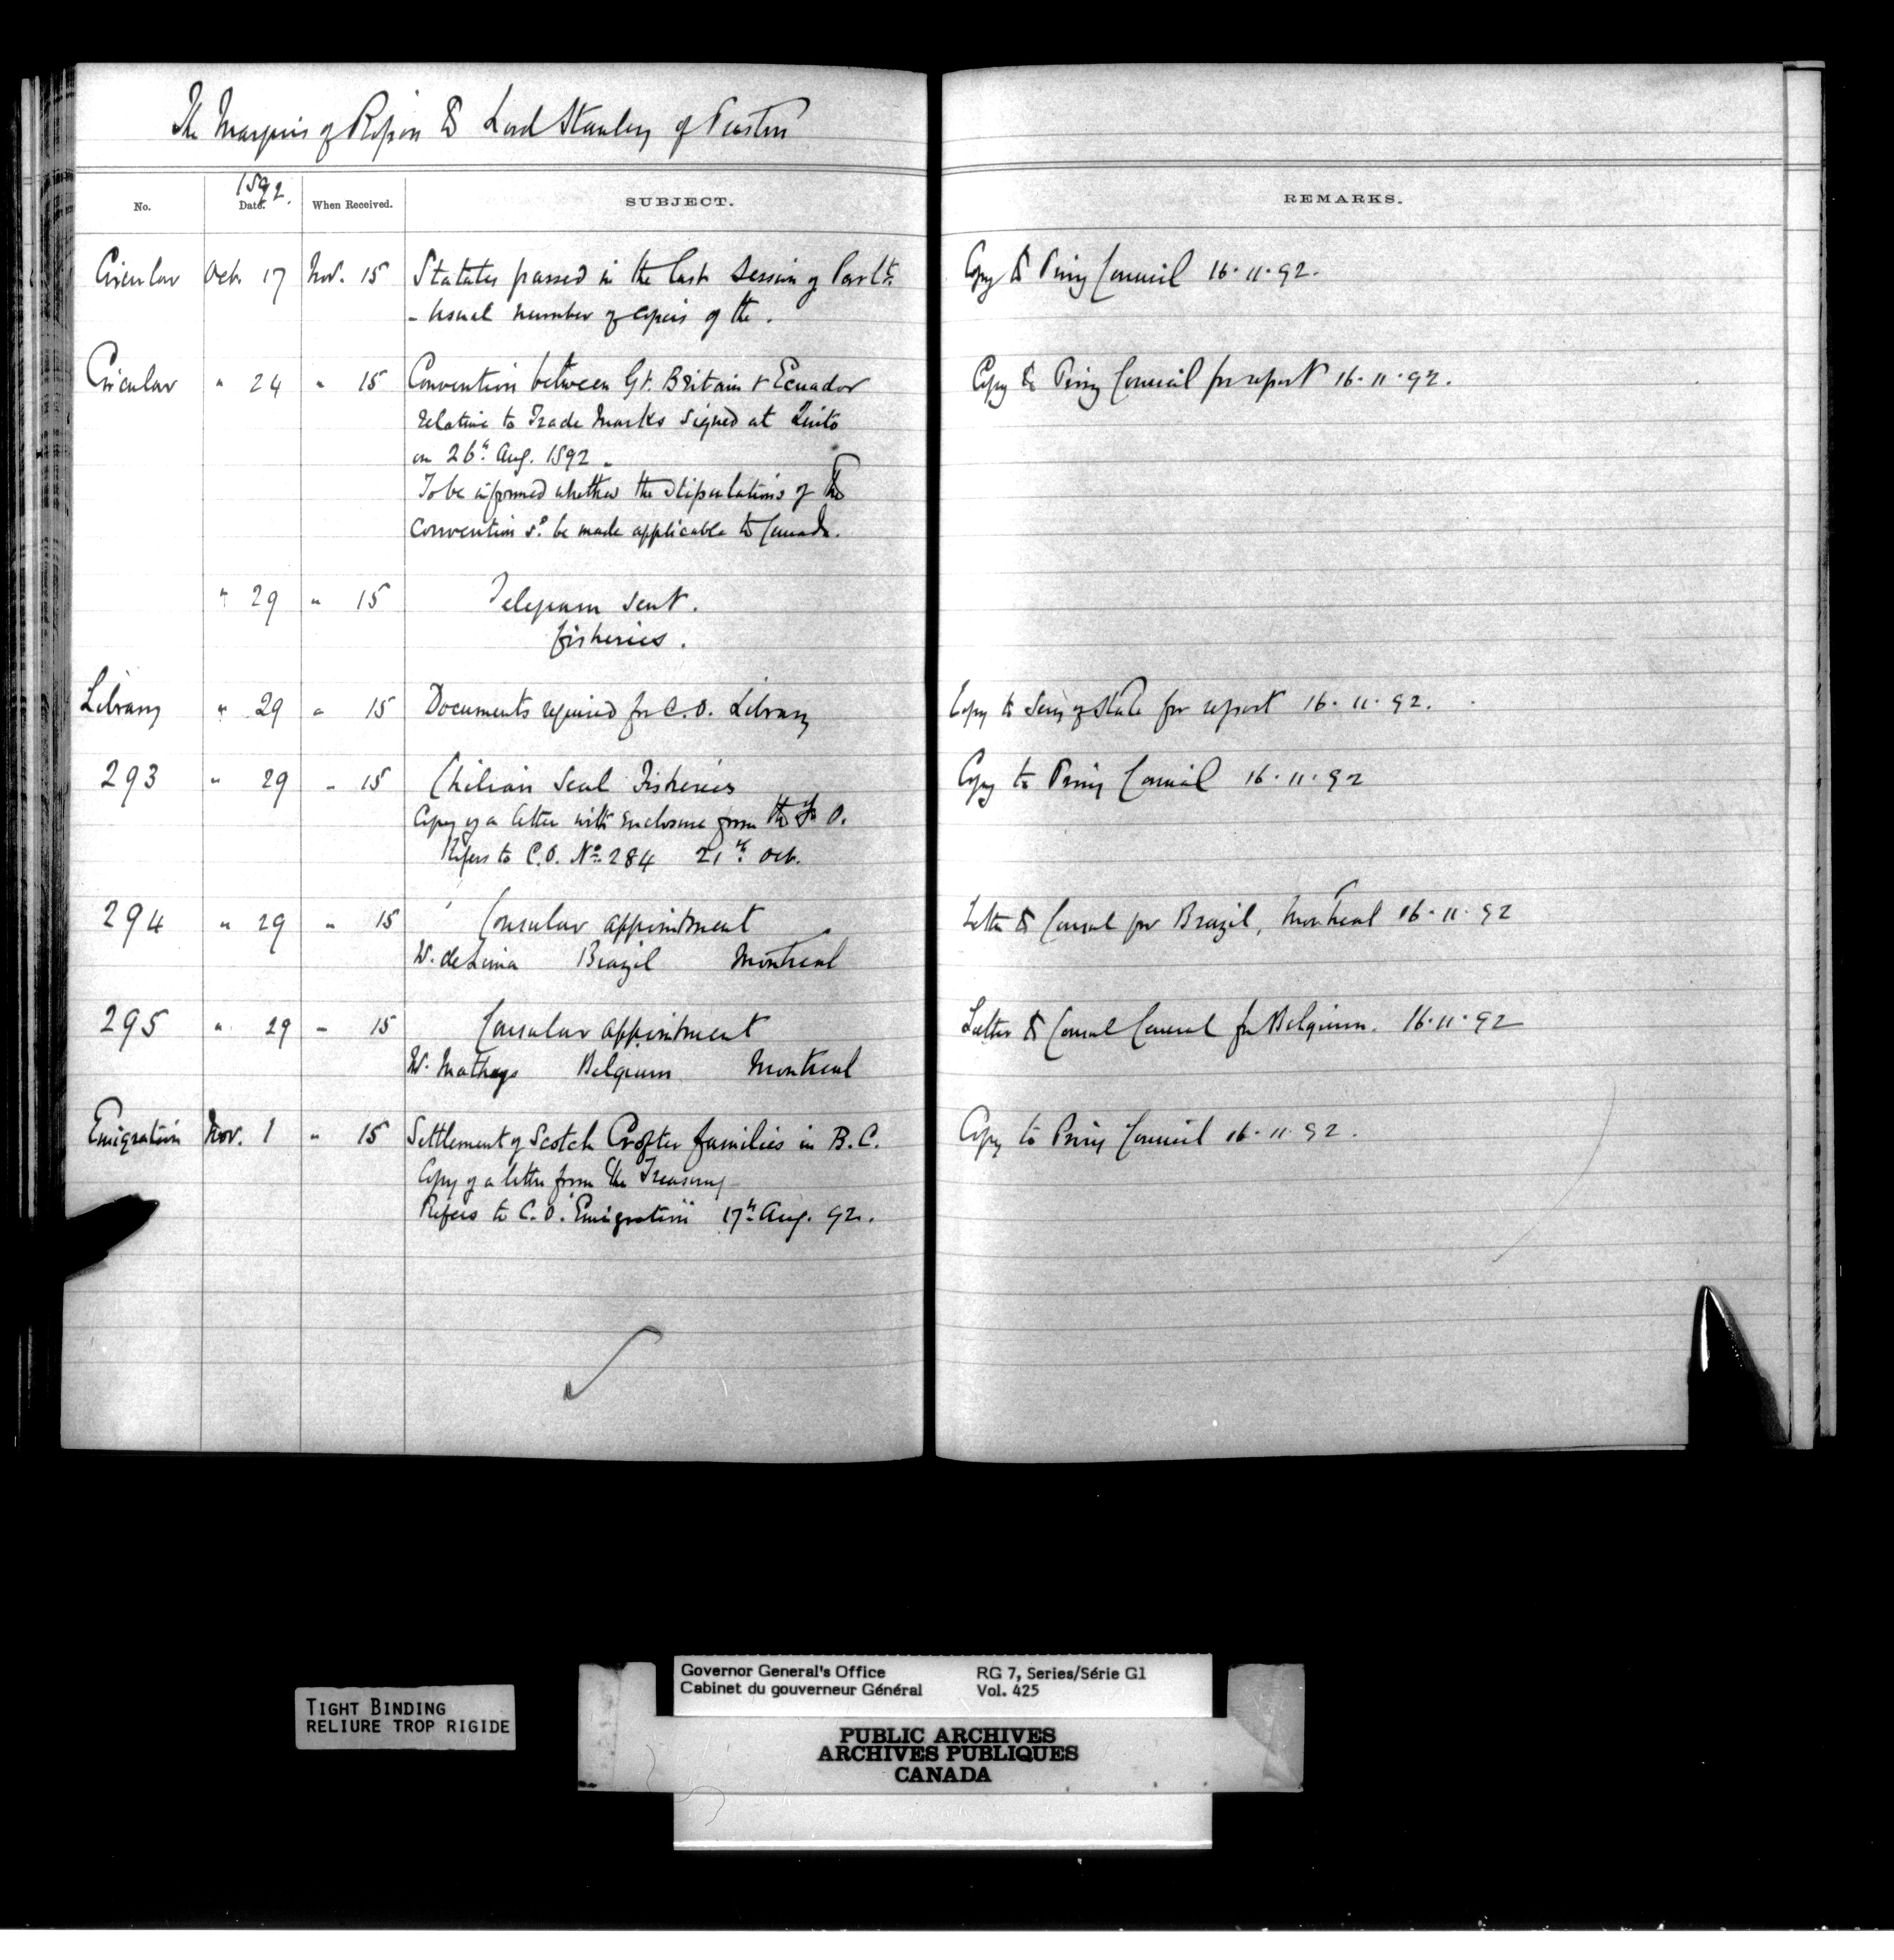 The Marquis of Ripon to Lord Stanley of Preston
No. 1892. Date. When Received. SUBJECT. REMARKS.
Circular Oct. 17 Nov. 15 Statutes passed in the last Session of Parlt. Copy to Privy Council 16.11.92.
- Usual number of copies of the.
Circular " 24 " 15 Convention between Gt. Britain & Ecuador Copy to Privy Council for report 16.11.92.
relative to Trade Marks signed at Quito
on 26th Aug. 1892.
To be informed whether the stipulations of the
convention sd. be made applicable to Canada.
" 29 " 15 Telegram sent.
fisheries.
Library " 29 " 15 Documents required for C.O. Library Copy to Secy of State for report 16.11.92.
293 " 29 " 15 Chilian Seal Fisheries Copy to Privy Council 16.11.92
Copy of a letter with enclosure from the F.O.
Refers to C.O. No. 284 21st Oct.
294 " 29 " 15 Consular appointment Letter to Consul for Brazil, Montreal 16.11.92
W. de Lima Brazil Montreal
295 " 29 " 15 Consular appointment Letter to Consul General for Belgium. 16.11.92
W. Mathys Belgium Montreal
Emigration Nov. 1 " 15 Settlement of Scotch Crofter families in B.C. Copy to Privy Council 16.11.92.
Copy of a letter from the Treasury
Refers to C.O. "Emigration" 17th Aug. 92.
TIGHT BINDING
RELIURE TROP RIGIDE
Governor General's Office RG 7, Series/Série G1
Cabinet du gouverneur Général Vol. 425
PUBLIC ARCHIVES
ARCHIVES PUBLIQUES
CANADA